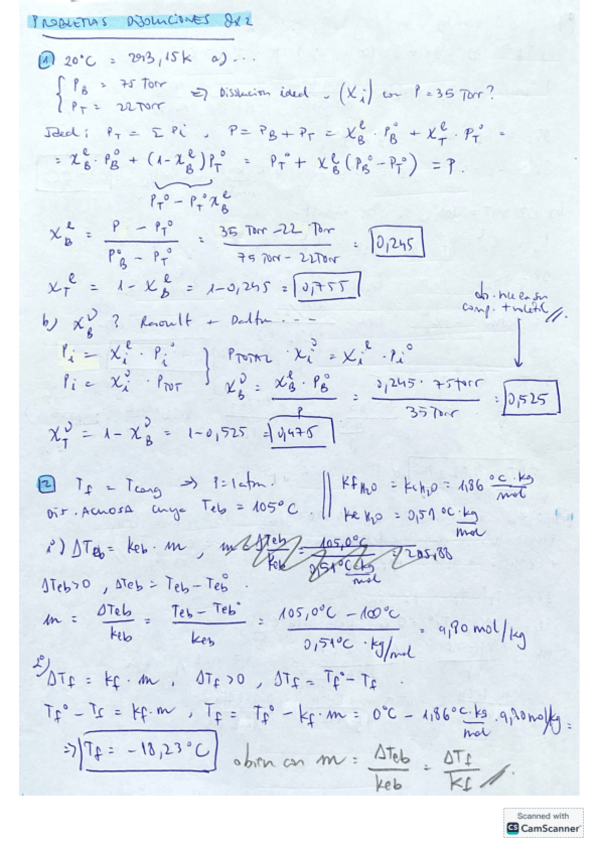 PROBLEMAS DISOLUCIONES
① 20°C = 293,15K a) ...
{ P_B = 75 Torr
{ P_T = 22 Torr ⇒ Disolución ideal (X_i) con P = 35 Torr?
Ideal: P_T = Σ P_i, P = P_B + P_T = X_B^l · P_B° + X_T^l · P_T° =
= X_B^l · P_B° + (1 - X_B^l) P_T° = P_T° + X_B^l (P_B° - P_T°) = P.
P_T° - P_T° X_B^l
X_B^l = (P - P_T°) / (P_B° - P_T°) = (35 Torr - 22 Torr) / (75 Torr - 22 Torr) = 0,245
X_T^l = 1 - X_B^l = 1 - 0,245 = 0,755
b) X_B^v? Raoult + Dalton ...
P_i = X_i^l · P_i°
P_i = X_i^v · P_TOT } P_TOTAL · X_i^v = X_i^l · P_i°
X_B^v = (X_B^l · P_B°) / P = (0,245 · 75 Torr) / 35 Torr = 0,525
X_T^v = 1 - X_B^v = 1 - 0,525 = 0,475
② T_f = T_cong ⇒ P = 1 atm.
Dis. Acuosa cuya Teb = 105°C.
Kf H2O = Kc H2O = 1,86 °C·kg/mol
Ke H2O = 0,51 °C·kg/mol
1º) ΔTeb = Keb · m,
ΔTeb > 0, ΔTeb = Teb - Teb°.
m = ΔTeb / Keb = (Teb - Teb°) / Keb = (105,0°C - 100°C) / (0,51°C · kg/mol) = 9,80 mol/kg
2º) ΔTf = Kf · m, ΔTf > 0, ΔTf = Tf° - Tf.
Tf° - Tf = Kf · m, Tf = Tf° - Kf · m = 0°C - 1,86 °C·kg/mol · 9,80 mol/kg =
⇒ Tf = -18,23°C
o bien con m = ΔTeb / Keb = ΔTf / Kf
Scanned with
CS CamScanner